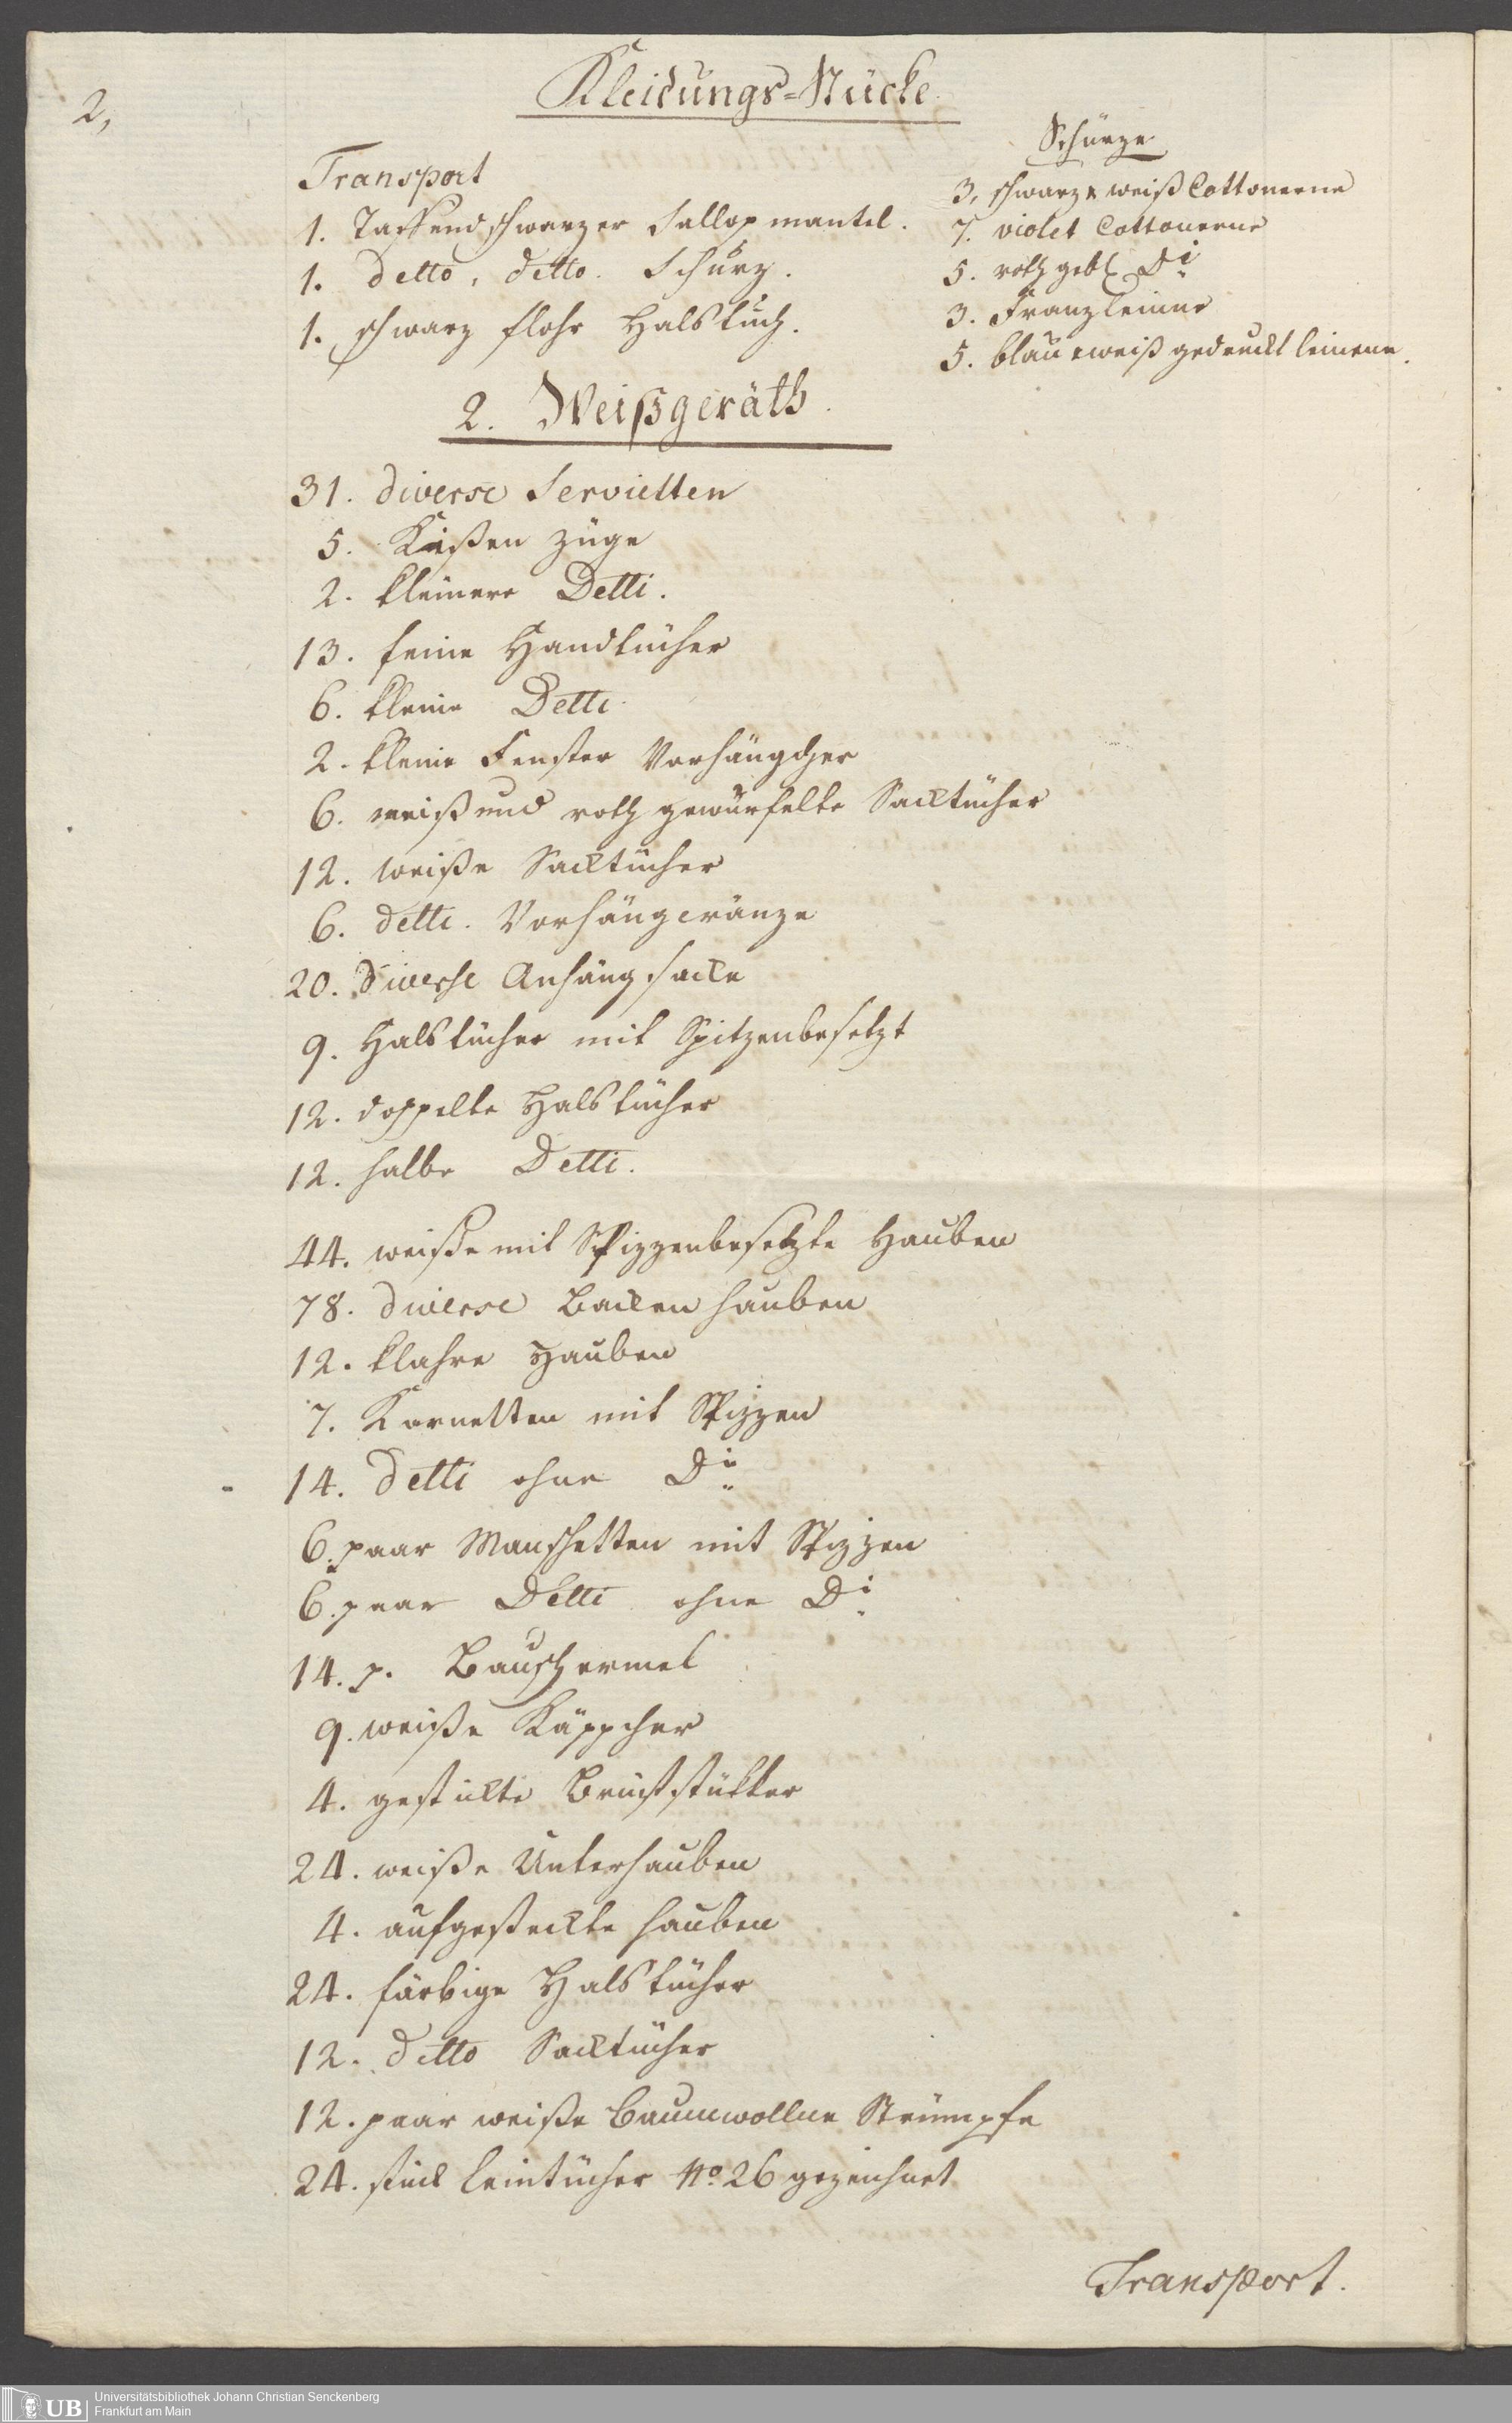 2,
Kleidungs=Stücke
Transport
1. Taffend schwarzer Sallop mantel.
1. detto, ditto. Schürz.
1. schwarz flohr Halstuch.
Schürze
3, schwarz u weiß Cottonerne
7. violet Cottonerne
5. roth gebl Di
3. Franzleinne
5. blau u weiß gedruckt leinene.
2. Weißgeräth.
31. diverse Servietten
5. Kißen züge
2. kleinere Detti.
13. feine Handtücher
6. kleine Detti
2. kleine Fenster Vorhängcher
6. weiß und roth gewürfelte Sacktücher
12. weiße Sacktücher
6. detti. Vorhängcränze
20. Diverse Anhängsacke
9. Halstücher mit Spitzenbesetzt
12. doppelte Halstücher
12. halbe Detti.
44. weiße mit Spizzenbesetzte Hauben
78. diverse Backen hauben
12. klahre Hauben
7. Kornetten mit Spizzen
14. detti ohne Di
6. paar Manschetten mit Spizzen
6. paar Detti ohne Di
14. p. Bauschermel
9. weiße Käppcher
4. gestickte Bruststükker
24. weiße Unterhauben
4. aufgesteckte hauben
24. färbige Halstücher
12. ditto Sacktücher
12. paar weiße baumwollne Strümpfe
24. stück Leintücher No. 26 gezeichnet
Transport.
UB
Universitätsbibliothek Johann Christian Senckenberg
Frankfurt am Main